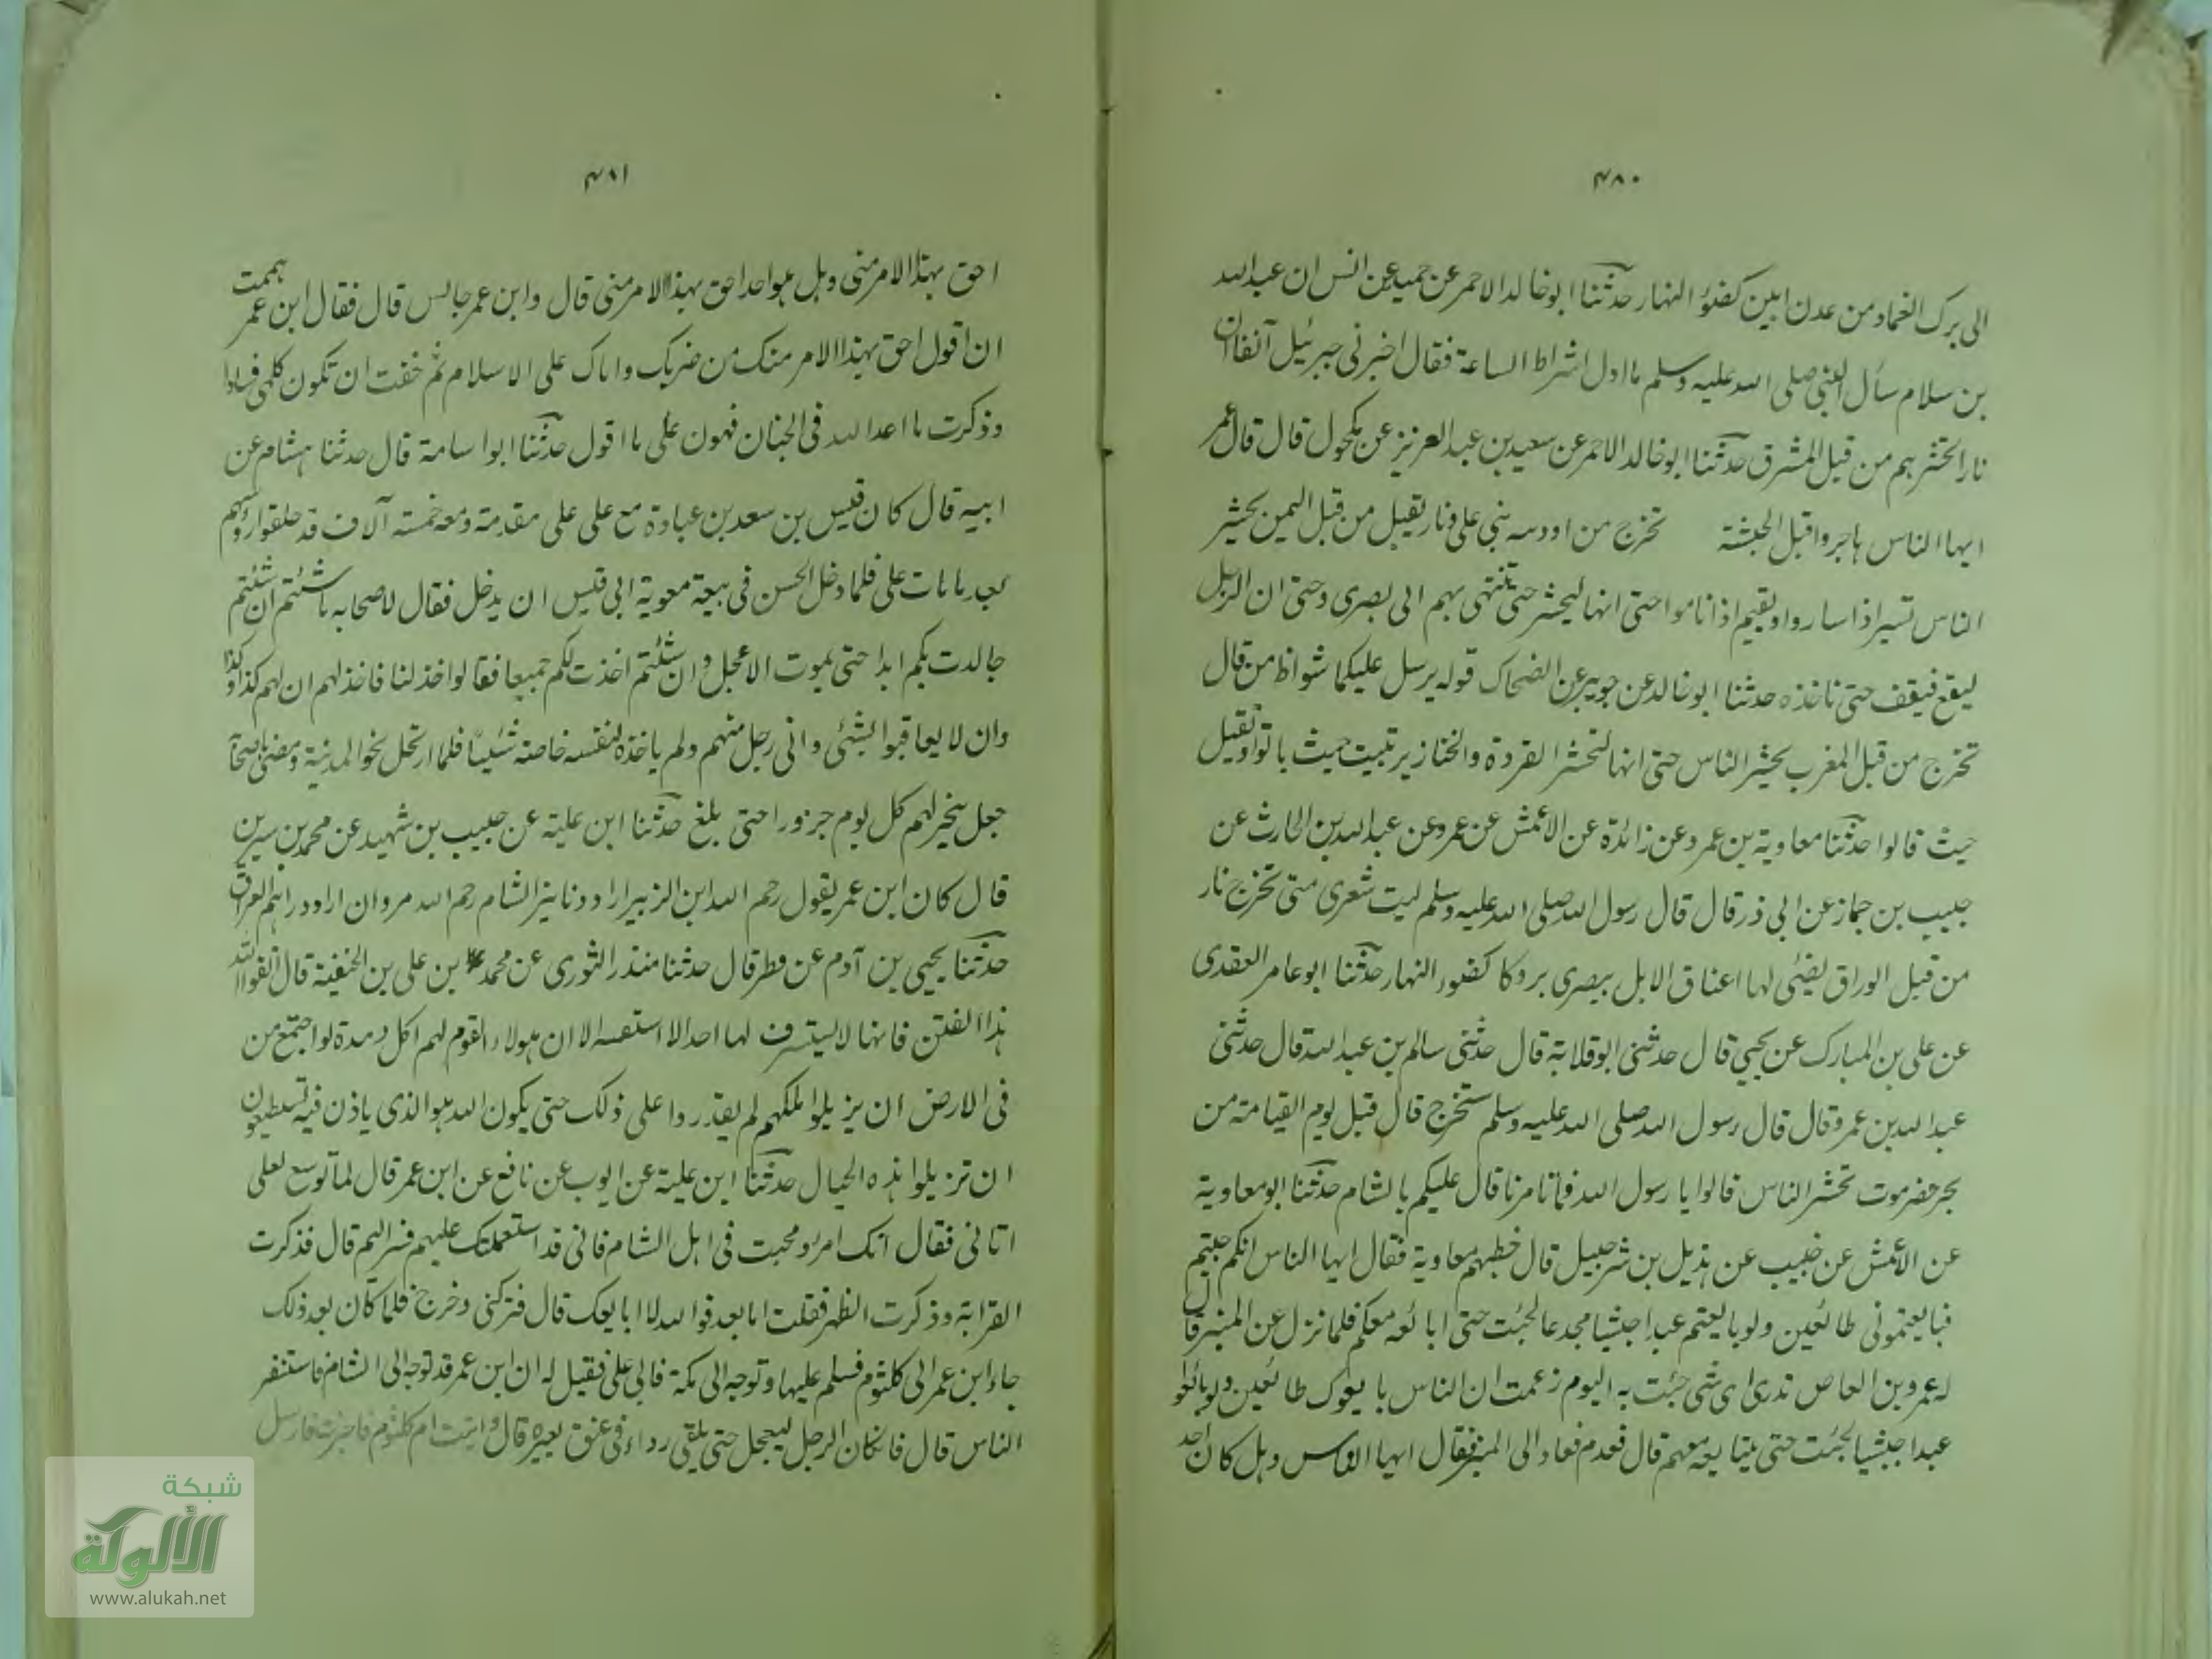 ۴۸۰
الى برك الغماد ومن عدن ابين كضوء النهار حدثنا ابو خالد الاحمر عن حميد عن انس ان عبد الله
بن سلام سأل النبى صلى الله عليه وسلم ما اول اشراط الساعة فقال اخبرنى جبرئيل آنفا ان
نارا تحشرهم من قبل المشرق حدثنا ابو خالد الاحمر عن سعيد بن عبد العزيز عن مكحول قال قال عمر
ايها الناس هاجروا قبل الحبشة تخرج من اودية بنى على ونار تقبل من قبل اليمن تحشر
الناس تسير اذا ساروا وتقيم اذا ناموا حتى انها لتحشر حتى تنتهى بهم الى بصرى وحتى ان الرجل
ليقع فيقف حتى تاخذه حدثنا ابو خالد عن جويبر عن الضحاك قوله يرسل عليكما شواظ من قال
تخرج من قبل المغرب تحشر الناس حتى انها لتحشر القردة والخنازير تبيت حيث باتوا وتقيل
حيث قالوا حدثنا معاوية بن عمرو عن زائدة عن الاعمش عن عمرو عن عبد الله بن الحارث عن
حبيب بن جماز عن ابى ذر قال قال رسول الله صلى الله عليه وسلم ليت شعرى متى تخرج نار
من قبل الوراق يضئ لها اعناق الابل ببصرى بروكا كضوء النهار حدثنا ابو عامر العقدى
عن على بن المبارك عن يحيى قال حدثنى ابو قلابة قال حدثنى سالم بن عبد الله قال حدثنى
عبد الله بن عمرو قال قال رسول الله صلى الله عليه وسلم ستخرج قال قبل يوم القيامة من
بحر حضرموت تحشر الناس قالوا يا رسول الله فما تامرنا قال عليكم بالشام حدثنا ابو معاوية
عن الاعمش عن حبيب عن هذيل بن شرحبيل قال خطبهم معاوية فقال ايها الناس انكم جئتم
فبايعتمونى طائعين ولو بايعتم عبدا حبشيا مجدعا لجئت حتى ابايعه معكم فلما نزل عن المنبر قال
له عمرو بن العاص تدرى اى شى جئت به اليوم زعمت ان الناس بايعوك طائعين ولو بايعوا
عبدا حبشيا لجئت حتى تبايعه معهم قال فندم فعاد الى المنبر فقال ايها الناس وهل كان احد
۴۸۱
احق بهذا الامر منى وهل هو احد احق بهذا الامر منى قال وابن عمر جالس قال فقال ابن عمر هممت
ان اقول احق بهذا الامر منك من ضربك واباك على الاسلام ثم خفت ان تكون كلمتى فسادا
وذكرت ما اعد الله فى الجنان فهون على ما اقول حدثنا ابو اسامة قال حدثنا هشام عن
ابيه قال كان قيس بن سعد بن عبادة مع على على مقدمته ومعه خمسة آلاف قد حلقوا رؤسهم
بعد ما مات على فلما دخل الحسن فى بيعة معوية ابى قيس ان يدخل فقال لاصحابه ما شئتم ان شئتم
جالدت بكم ابدا حتى يموت الاعجل وان شئتم اخذت لكم جميعا فقالوا خذ لنا فاخذ لهم ان لهم كذا وكذا
وان لا يعاقبوا بشئ وانى رجل منهم ولم ياخذ لنفسه خاصة شيئا فلما ارتحل نحو المدينة ومضى باصحابه
جعل ينحر لهم كل يوم جزورا حتى بلغ حدثنا ابن علية عن حبيب بن شهيد عن محمد بن سيرين
قال كان ابن عمر يقول رحم الله ابن الزبير اراد دنانير الشام رحم الله مروان اراد دراهم العراق
حدثنا يحيى بن آدم عن فطر قال حدثنا منذر الثورى عن محمد بن على بن الحنفية قال اتقوا الله
هذا الفتن فانها لا يستشرف لها احد الا استبقته الا ان هولاء القوم لهم اكل ومدة لو اجتمع من
فى الارض ان يزيلوا ملكهم لم يقدروا على ذلك حتى يكون الله هو الذى ياذن فيه تستطيعون
ان تزيلوا هذه الجبال حدثنا ابن علية عن ايوب عن نافع عن ابن عمر قال لما توسع لعلى
اتانى فقال انك امرؤ محبب فى اهل الشام فانى قد استعملتك عليهم فسر اليهم قال فذكرت
القرابة وذكرت الظهر فقلت اما بعد فوالله لا ابايعك قال فتركنى وخرج فلما كان بعد ذلك
جاء ابن عمر الى كلثوم فسلم عليها وتوجه الى مكة فاتى على فقيل له ان ابن عمر قد توجه الى الشام فاستنفر
الناس قال فان كان الرجل ليعجل حتى يلقى رداءه فى عنق بعيره قال واتيت ام كلثوم فاخبرت فارسل
شبكة
الألوكة
www.alukah.net